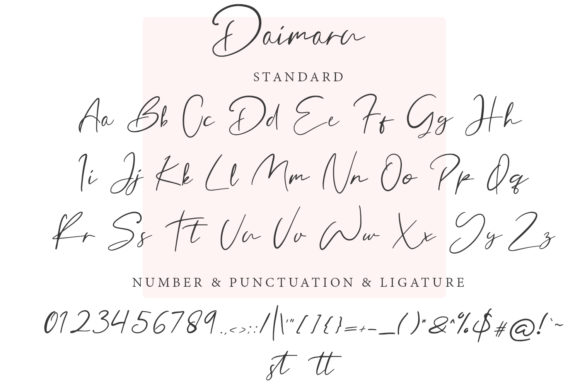 Daimaru
STANDARD
Aa Bb Cc Dd Ee Ff Gg Hh
Ii Jj Kk Ll Mm Nn Oo Pp Qq
Rr Ss Tt Uu Vv Ww Xx Yy Zz
NUMBER & PUNCTUATION & LIGATURE
0123456789.,<>;:/|\'"[]{}=+-_()*&^%$#@!`~
st tt